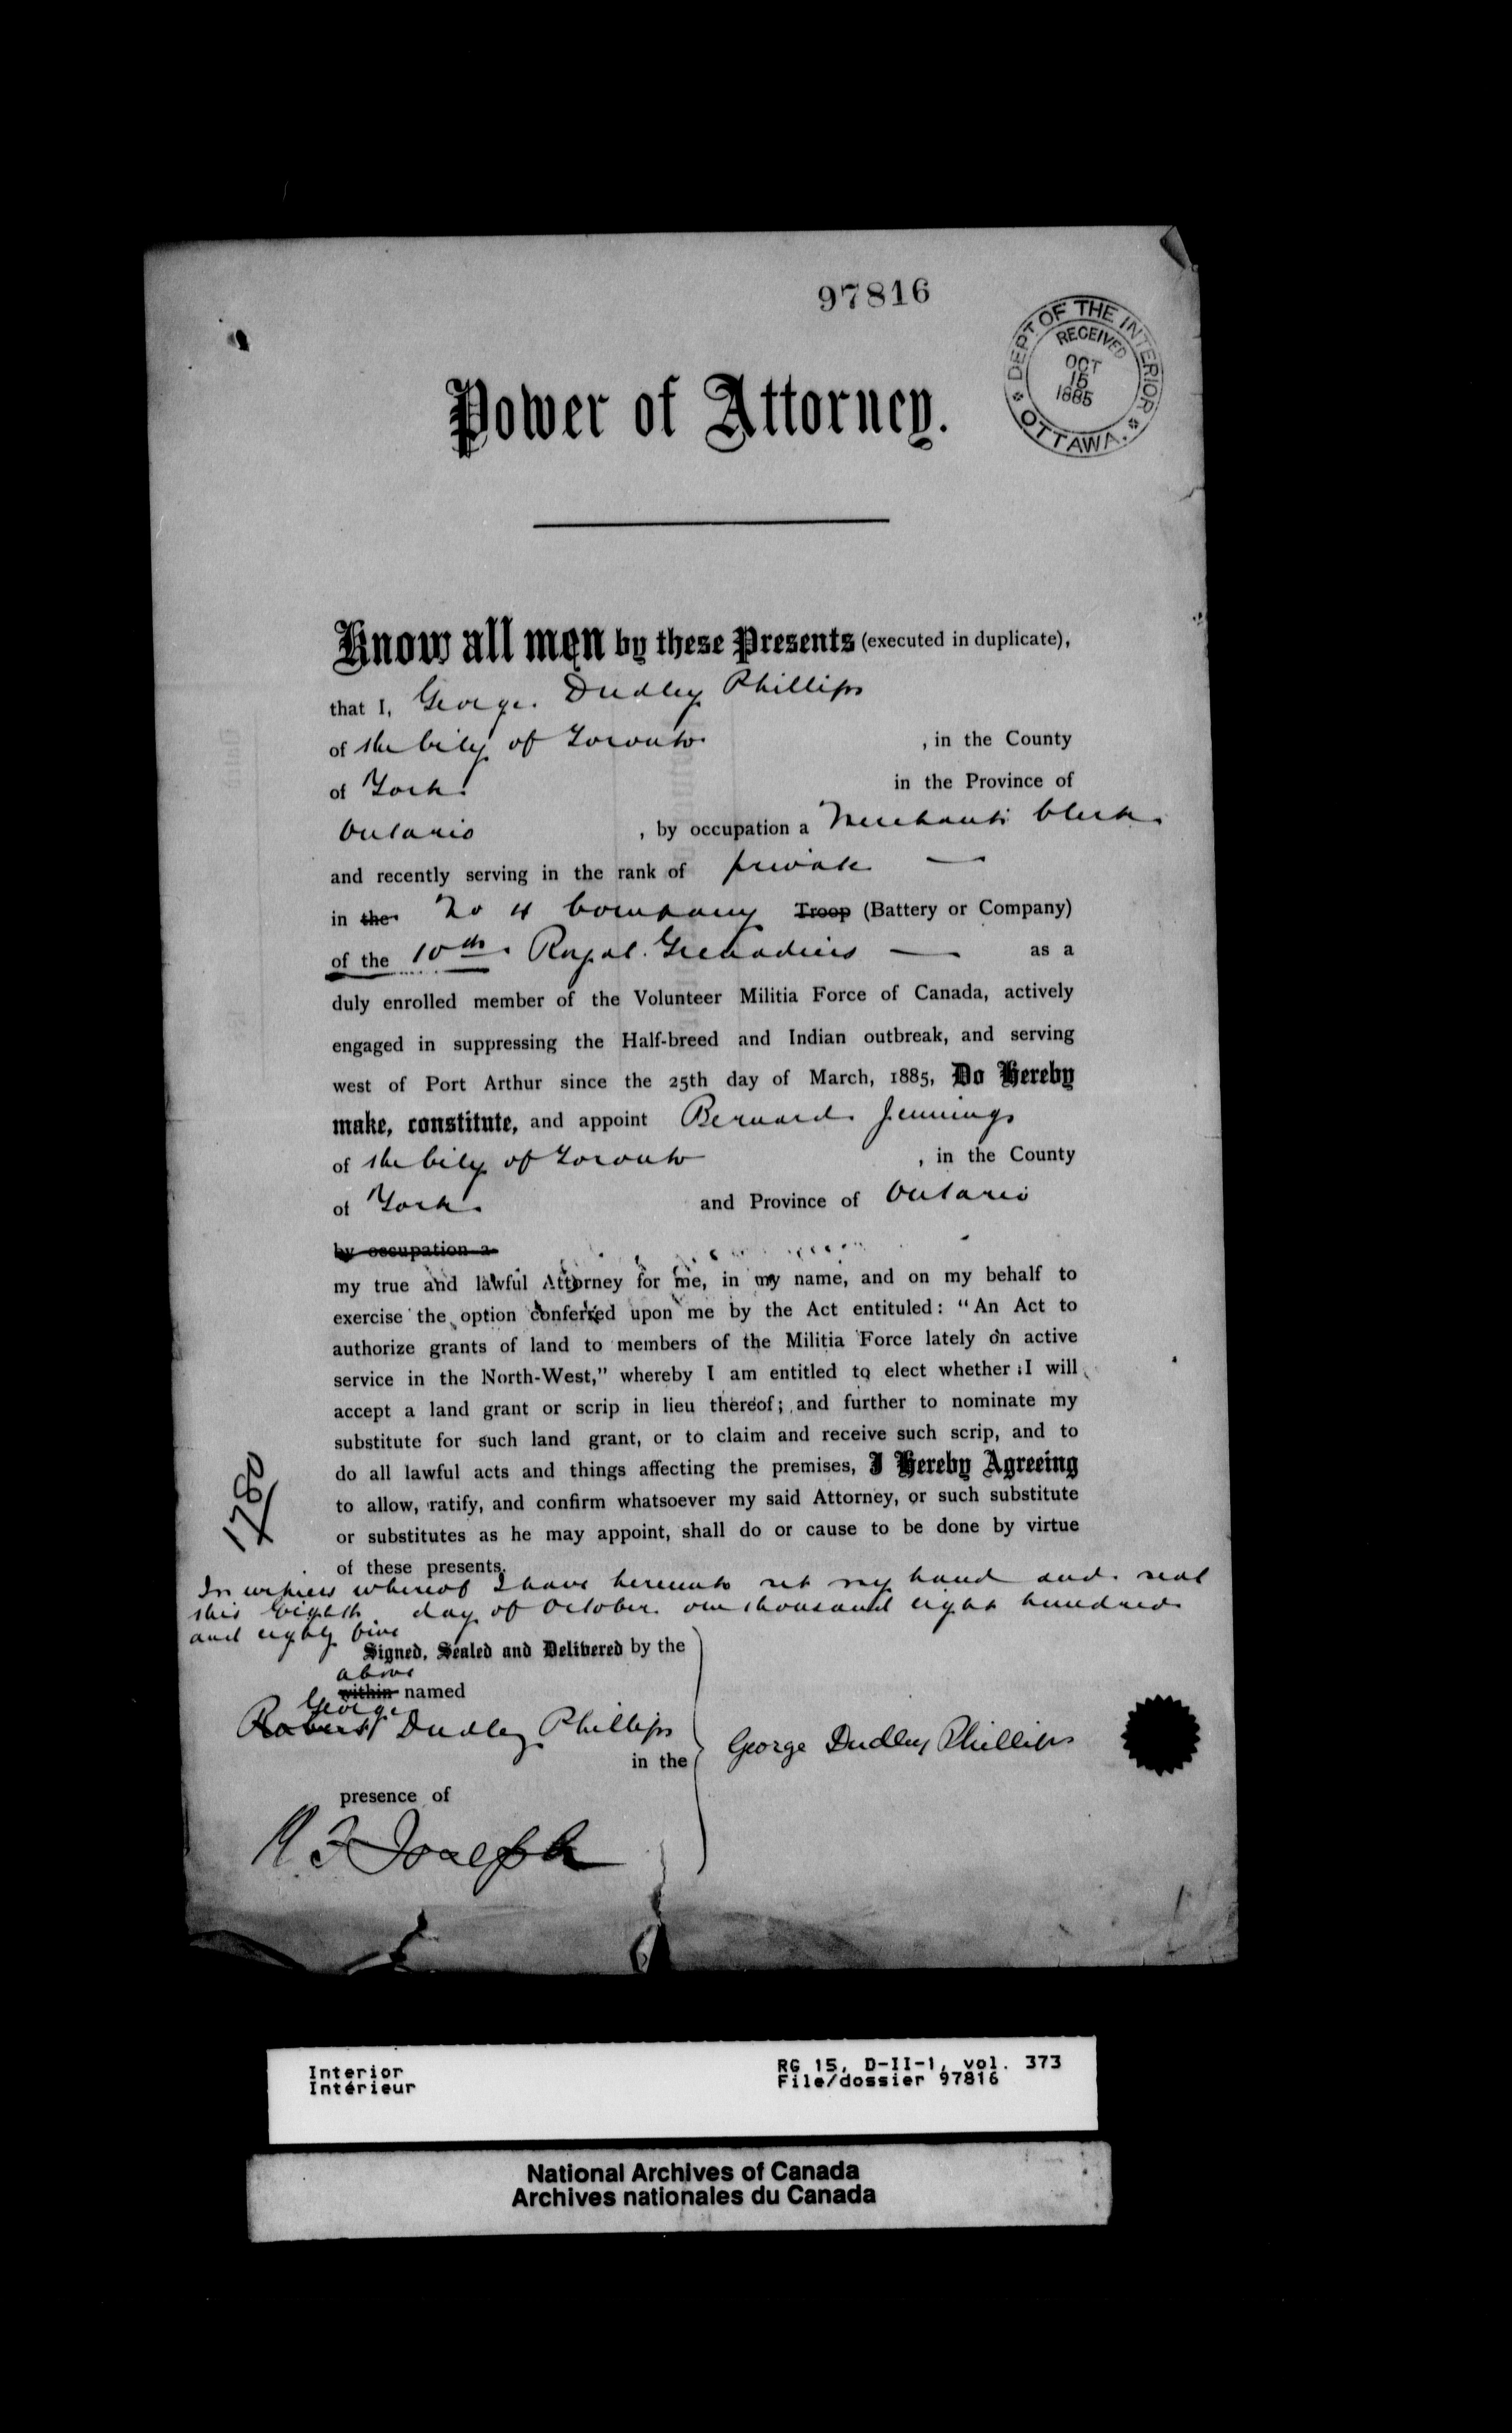 97816
DEPT OF THE INTERIOR
RECEIVED
OCT
15
1885
OTTAWA.
Power of Attorney.
Know all men by these Presents (executed in duplicate),
that I, George Dudley Phillips
of the City of Toronto , in the County
of York in the Province of
Ontario , by occupation a Merchants Clerk
and recently serving in the rank of private —
in the No 4 Company Troop (Battery or Company)
of the 10th Royal Grenadiers — as a
duly enrolled member of the Volunteer Militia Force of Canada, actively
engaged in suppressing the Half-breed and Indian outbreak, and serving
west of Port Arthur since the 25th day of March, 1885, Do Hereby
make, constitute, and appoint Bernard Jennings
of the City of Toronto , in the County
of York and Province of Ontario
by occupation a
my true and lawful Attorney for me, in my name, and on my behalf to
exercise the option conferred upon me by the Act entituled: "An Act to
authorize grants of land to members of the Militia Force lately on active
service in the North-West," whereby I am entitled to elect whether I will
accept a land grant or scrip in lieu thereof; and further to nominate my
substitute for such land grant, or to claim and receive such scrip, and to
do all lawful acts and things affecting the premises, I Hereby Agreeing
to allow, ratify, and confirm whatsoever my said Attorney, or such substitute
or substitutes as he may appoint, shall do or cause to be done by virtue
of these presents.
1780
In witness whereof I have hereunto set my hand and seal
this Eighth day of October one thousand eight hundred
and eighty five
Signed, Sealed and Delivered by the
above
within named
George
Robert Dudley Phillips
in the
George Dudley Phillips
presence of
Joseph
Interior
Intérieur
RG 15, D-II-1, vol. 373
File/dossier 97816
National Archives of Canada
Archives nationales du Canada